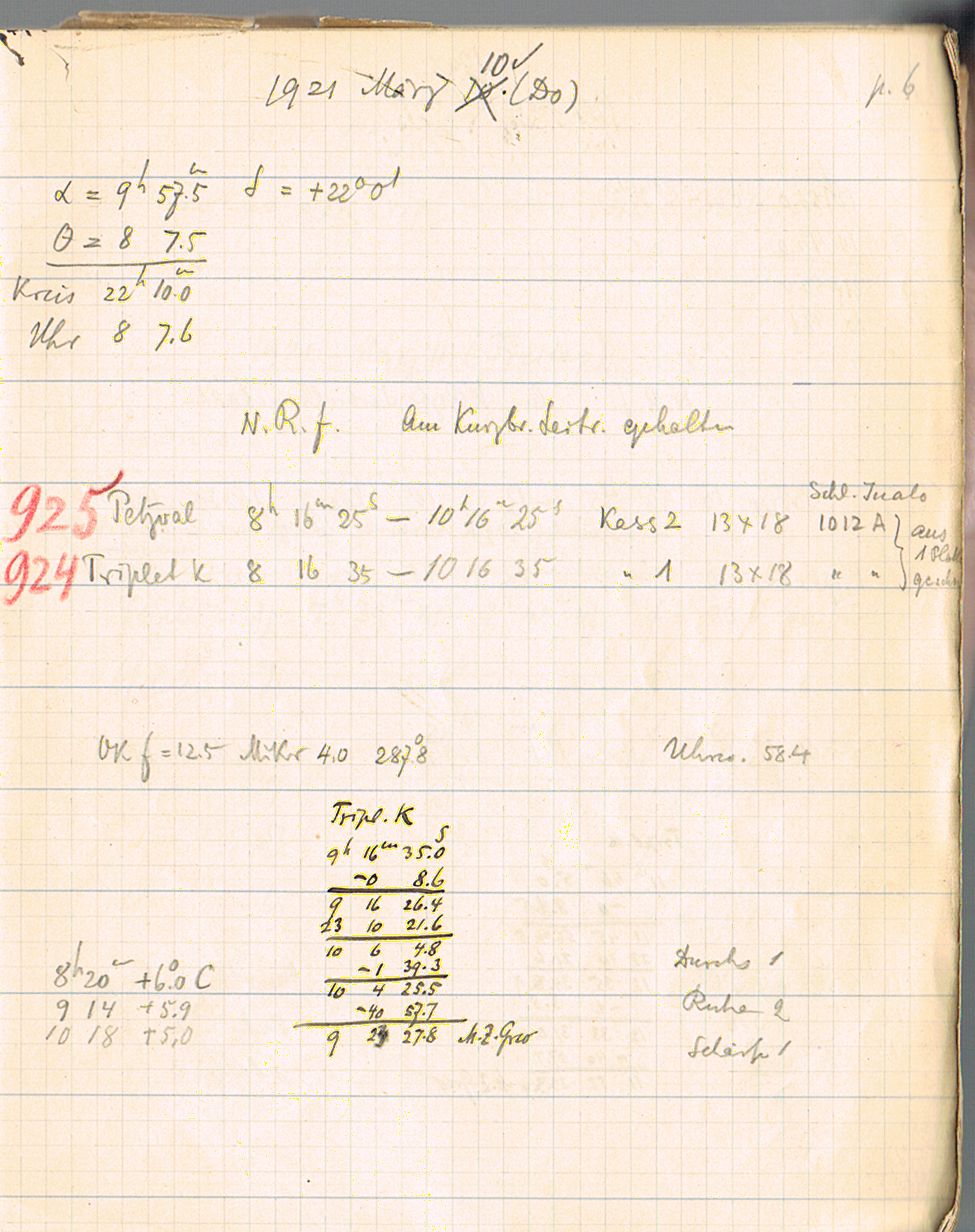 10✓
1921 März (Do)
p. 6
α = 9ʰ 57.ᵐ5 δ = +22°0'
θ = 8 7.5
Kreis 22ʰ 10.ᵐ0
Uhr 8 7.6
N.R.f. Am Kurzbr. Leitr. gehalten
Schl. Inalo
925 Petzval 8ʰ 16ᵐ 25ˢ — 10ʰ 16ᵐ 25ˢ Kass 2 13×18 1012 A } aus
924 Triplet K 8 16 35 — 10 16 35 " 1 13×18 " " 1
OK f = 12.5 Mikr 4.0 287.°8 Uhrco. 58.4
Tripl. K
9ʰ 16ᵐ 35.ˢ0
-0 8.6
9 16 26.4
23 10 21.6
10 6 4.8
-1 39.3
10 4 25.5
-40 57.7
9 23 27.8 M.Z.Grw
8ʰ20ᵐ +6.°0 C
9 14 +5.9
10 18 +5,0
Durchs 1
Ruhe 2
Schärfe 1